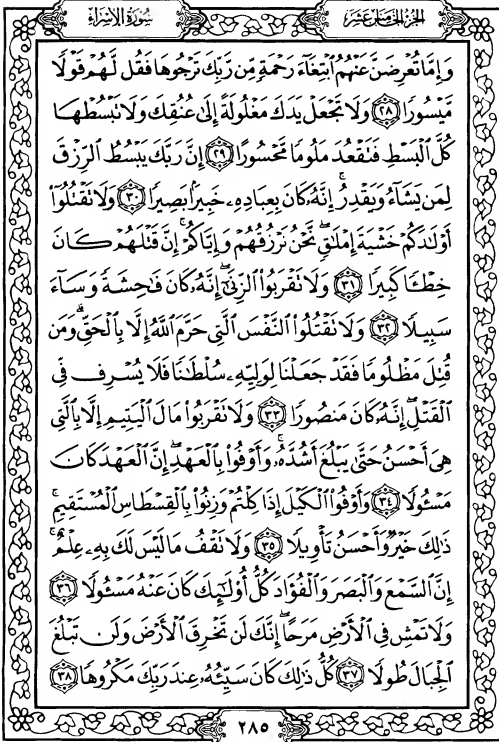 الجزء الخامس عشر
سورة الإسراء
وَإِمَّا تُعْرِضَنَّ عَنْهُمُ ٱبْتِغَآءَ رَحْمَةٍ مِّن رَّبِّكَ تَرْجُوهَا فَقُل لَّهُمْ قَوْلًا
مَّيْسُورًا ٢٨ وَلَا تَجْعَلْ يَدَكَ مَغْلُولَةً إِلَىٰ عُنُقِكَ وَلَا تَبْسُطْهَا
كُلَّ ٱلْبَسْطِ فَتَقْعُدَ مَلُومًا مَّحْسُورًا ٢٩ إِنَّ رَبَّكَ يَبْسُطُ ٱلرِّزْقَ
لِمَن يَشَآءُ وَيَقْدِرُ ۚ إِنَّهُۥ كَانَ بِعِبَادِهِۦ خَبِيرًۢا بَصِيرًا ٣٠ وَلَا تَقْتُلُوٓا۟
أَوْلَٰدَكُمْ خَشْيَةَ إِمْلَٰقٍ ۖ نَّحْنُ نَرْزُقُهُمْ وَإِيَّاكُمْ ۚ إِنَّ قَتْلَهُمْ كَانَ
خِطْـًٔا كَبِيرًا ٣١ وَلَا تَقْرَبُوا۟ ٱلزِّنَىٰٓ ۖ إِنَّهُۥ كَانَ فَٰحِشَةً وَسَآءَ
سَبِيلًا ٣٢ وَلَا تَقْتُلُوا۟ ٱلنَّفْسَ ٱلَّتِى حَرَّمَ ٱللَّهُ إِلَّا بِٱلْحَقِّ ۗ وَمَن
قُتِلَ مَظْلُومًا فَقَدْ جَعَلْنَا لِوَلِيِّهِۦ سُلْطَٰنًا فَلَا يُسْرِف فِّى
ٱلْقَتْلِ ۖ إِنَّهُۥ كَانَ مَنصُورًا ٣٣ وَلَا تَقْرَبُوا۟ مَالَ ٱلْيَتِيمِ إِلَّا بِٱلَّتِى
هِىَ أَحْسَنُ حَتَّىٰ يَبْلُغَ أَشُدَّهُۥ ۚ وَأَوْفُوا۟ بِٱلْعَهْدِ ۖ إِنَّ ٱلْعَهْدَ كَانَ
مَسْـُٔولًا ٣٤ وَأَوْفُوا۟ ٱلْكَيْلَ إِذَا كِلْتُمْ وَزِنُوا۟ بِٱلْقِسْطَاسِ ٱلْمُسْتَقِيمِ ۚ
ذَٰلِكَ خَيْرٌ وَأَحْسَنُ تَأْوِيلًا ٣٥ وَلَا تَقْفُ مَا لَيْسَ لَكَ بِهِۦ عِلْمٌ ۚ
إِنَّ ٱلسَّمْعَ وَٱلْبَصَرَ وَٱلْفُؤَادَ كُلُّ أُو۟لَٰٓئِكَ كَانَ عَنْهُ مَسْـُٔولًا ٣٦
وَلَا تَمْشِ فِى ٱلْأَرْضِ مَرَحًا ۖ إِنَّكَ لَن تَخْرِقَ ٱلْأَرْضَ وَلَن تَبْلُغَ
ٱلْجِبَالَ طُولًا ٣٧ كُلُّ ذَٰلِكَ كَانَ سَيِّئُهُۥ عِندَ رَبِّكَ مَكْرُوهًا ٣٨
٢٨٥